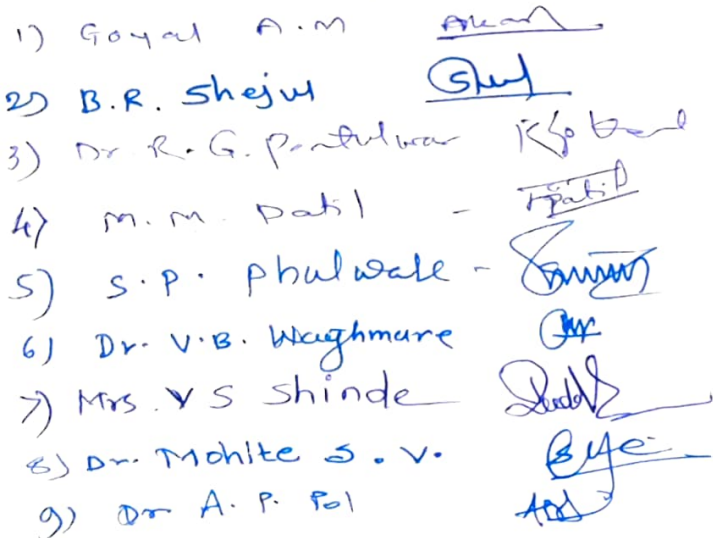 1) Goyal A.M
2) B.R. Shejul
3) Dr R.G. Pentulwar
4) M.M. Patil - Patil
5) S.P. Phulwale -
6) Dr. V.B. Waghmare
7) Mrs. V S Shinde
8) Dr. Mohite S.V.
9) Dr A.P. Pol